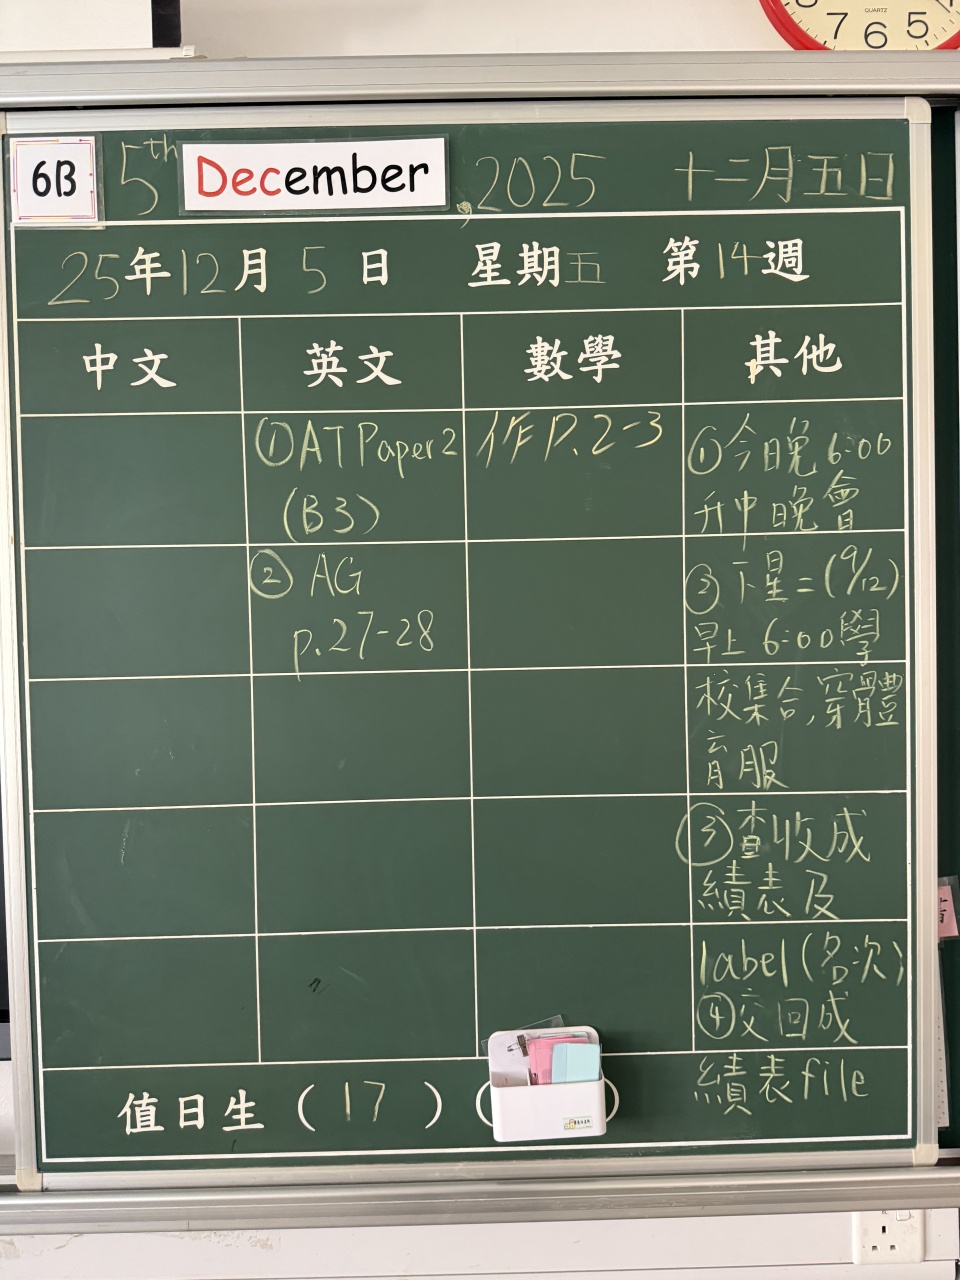 QUARTZ
7 6 5
6B 5th December, 2025 十二月五日
25年12月5日 星期五 第14週
中文 英文 數學 其他
①AT Paper 2
(B3)
② AG
p.27-28
作 P.2-3
①今晚6:00
升中晚會
②下星二(9/12)
早上6:00學
校集合,穿體
育服
③查收成
績表及
label(名次)
④交回成
績表file
值日生(17)(
)